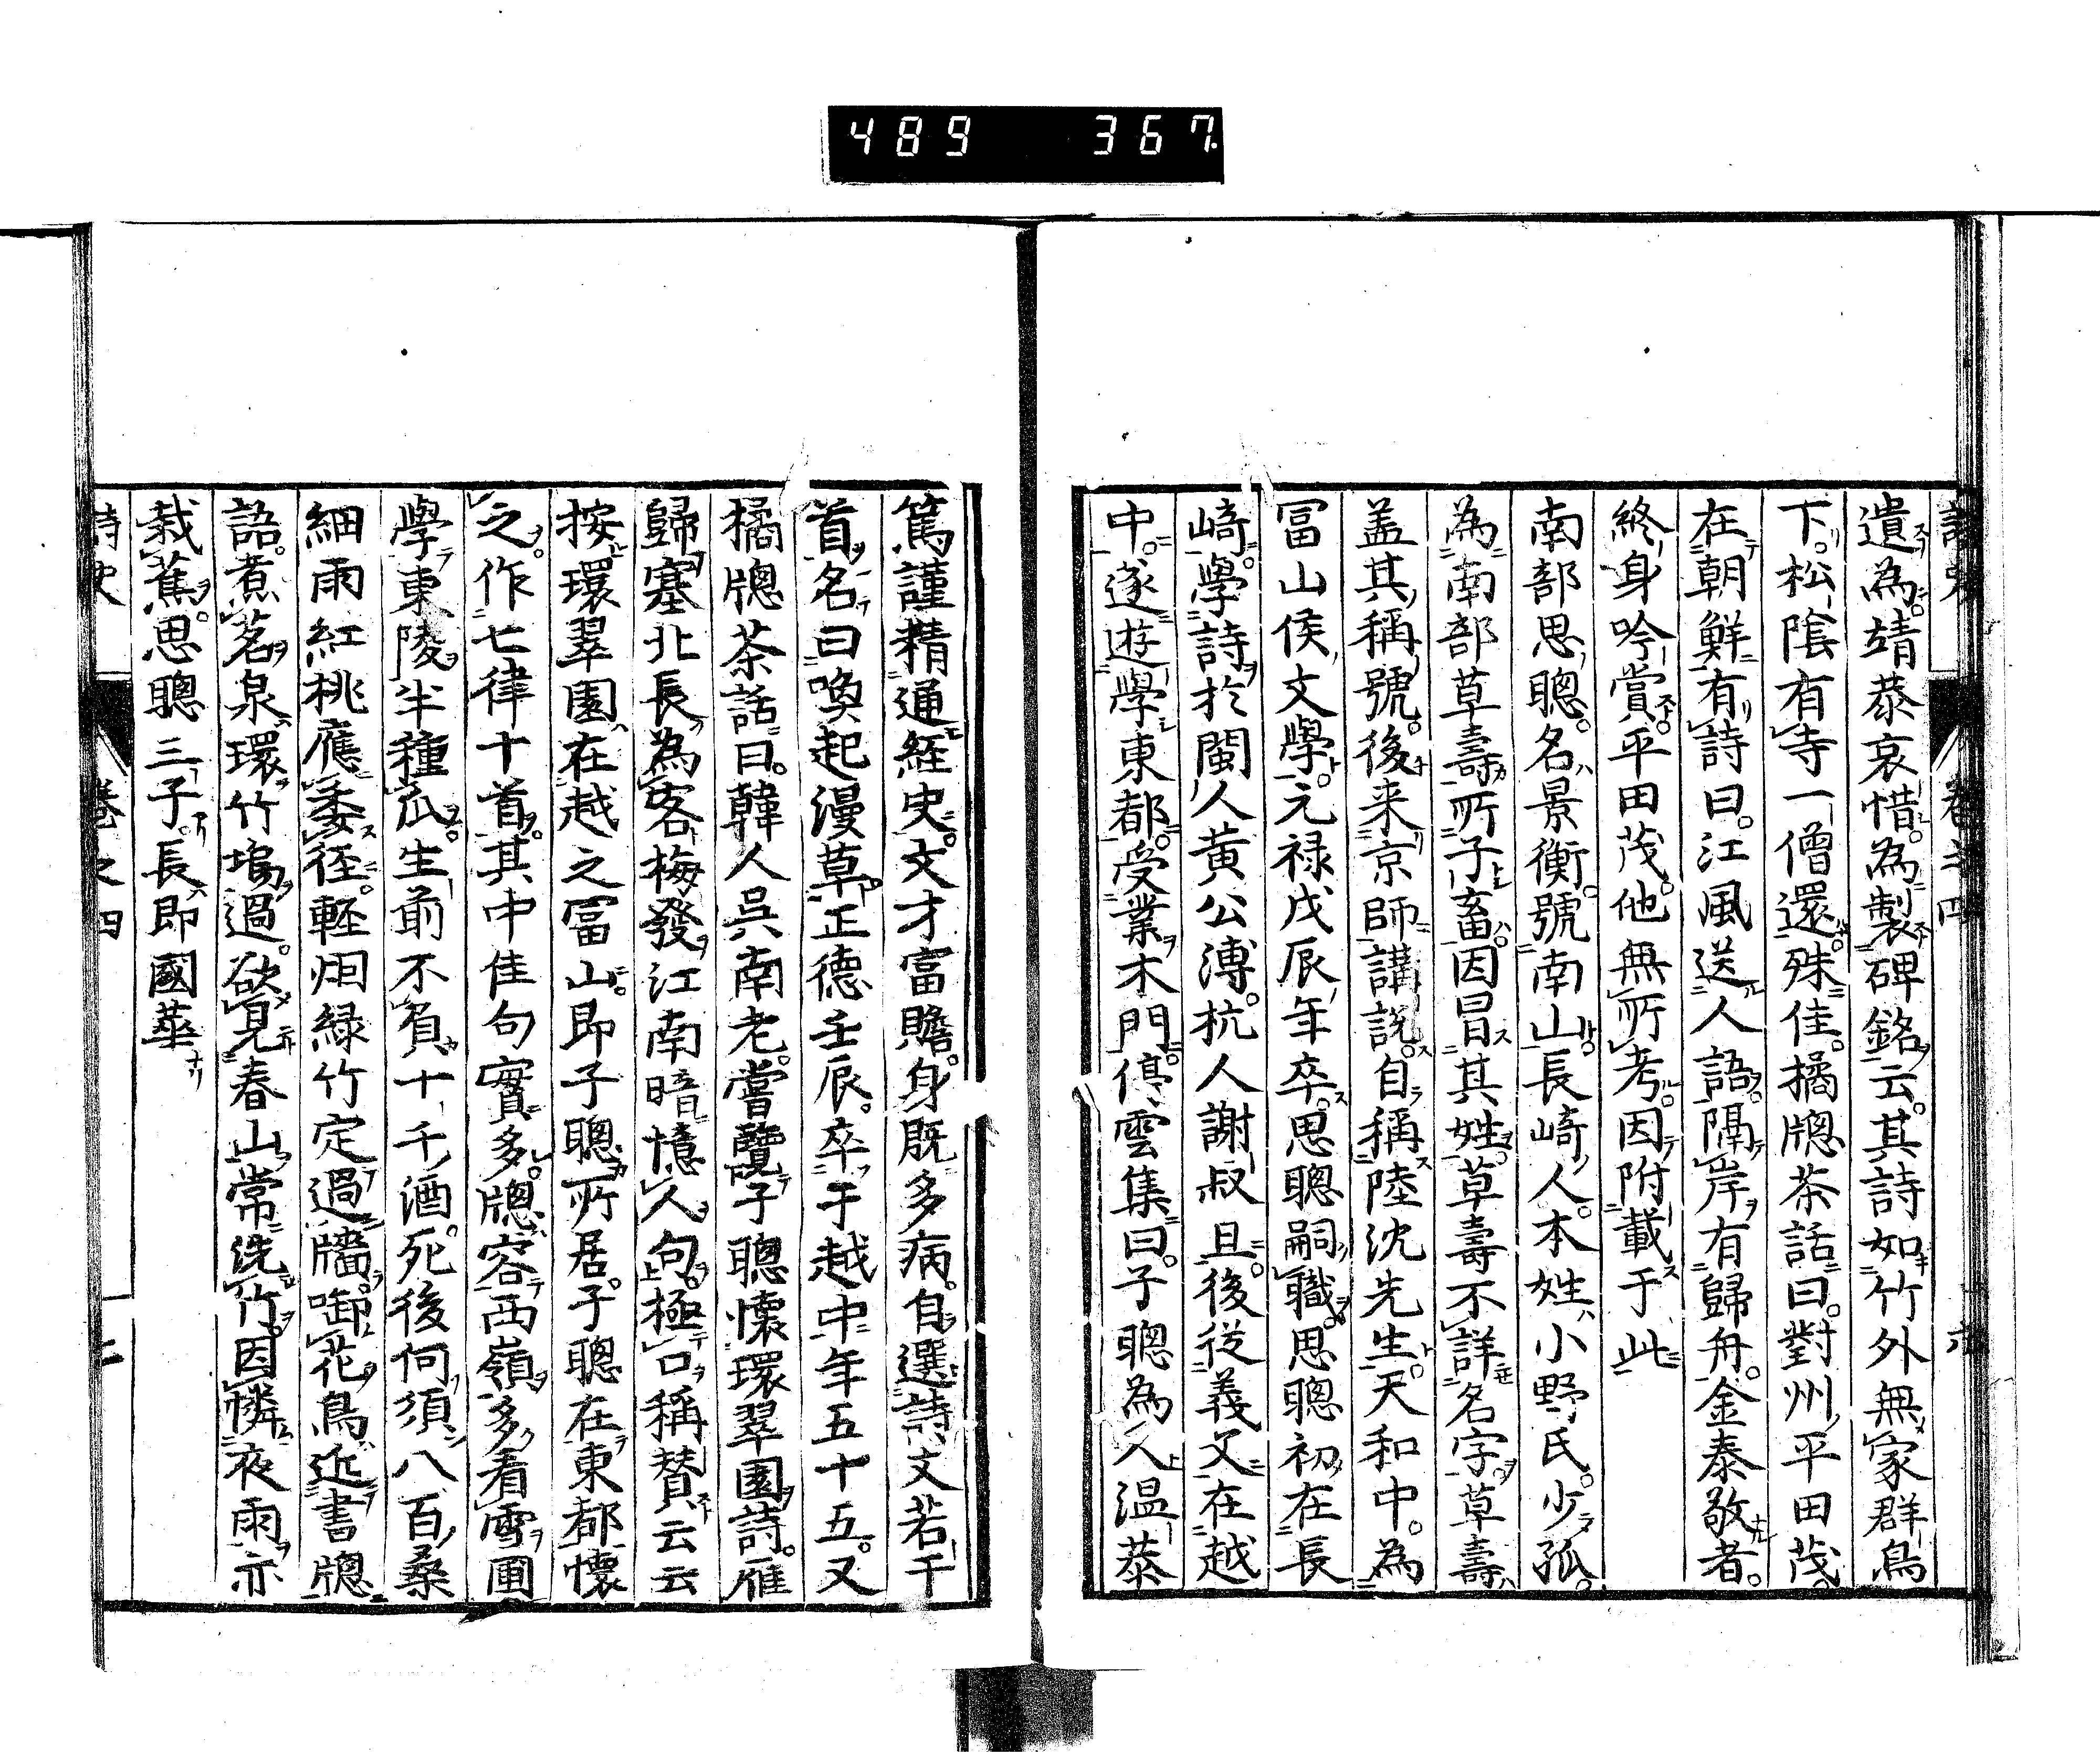 489 367
遺為靖恭哀惜為製碑銘云其詩如竹外無家群鳥
下松陰有寺一僧還殊佳橘牕茶話曰對州平田茂
在朝鮮有詩曰江風送人語隔岸有歸舟金泰敬者
終身吟賞平田茂他無所考因附載于此
南部思聰名景衡號南山長崎人本姓小野氏少孤
為南部草壽所子畜因冒其姓草壽不詳名字草壽
盖其稱號後来京師講説自稱陸沈先生天和中為
冨山侯文學元禄戊辰年卒思聰嗣職思聰初在長
崎學詩於閩人黄公溥杭人謝叔且後從義父在越
中遂遊學東都受業木門停雲集曰子聰為人温恭
篤謹精通経史文才富贍身既多病自選詩文若干
首名曰喚起漫草正德壬辰卒于越中年五十五又
橘牕茶話曰韓人吳南老嘗覽子聰懷環翠園詩雁
歸塞北長為客梅發江南暗憶人句極口稱賛云云
按環翠園在越之冨山即子聰所居子聰在東都懷
之作七律十首其中佳句實多牕容西嶺多看雪圃
學東陵半種瓜生前不負十千酒死後何須八百桑
細雨紅桃應委徑輕烟緑竹定過牆啣花鳥近書牕
語煮茗泉環竹塢過欲見春山常洗竹因憐夜雨亦
栽蕉思聰三子長即國華
詩史 卷之四